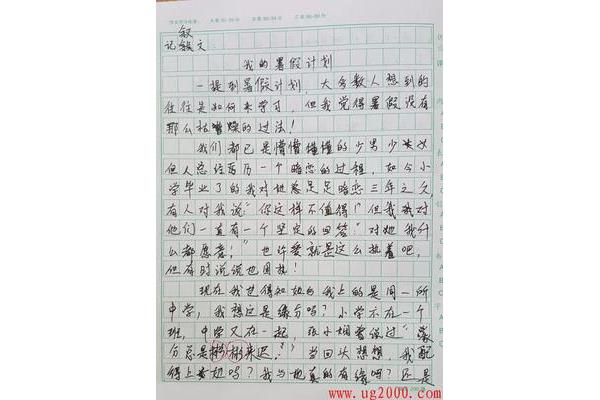 叙
记叙文
我的暑假计划
一提到暑假计划，大多数人想到的
往往是如何来学习，但我觉得暑假没有
那么枯燥的过法！
我们都已是懵懵懂懂的少男少女
但人总经历一个暗恋的过程，如今小
学毕业了的我对她总是足足暗恋三年之久，
有人对我说“你这样不值得！”但我对
他们一直有一个坚定的回答“对她我什
么都愿意！”也许爱就是这么执着吧，
但有时说说也困扰！
现在我已得知她与我上的是同一所
中学，我想这是缘分吗？小学不在一个
班，中学又在一起，张小娴曾说过“缘
分总是彬彬来迟？”当回头想想，我配
得上她吗？我与她真的有缘吗？还是
www.ug2000.com